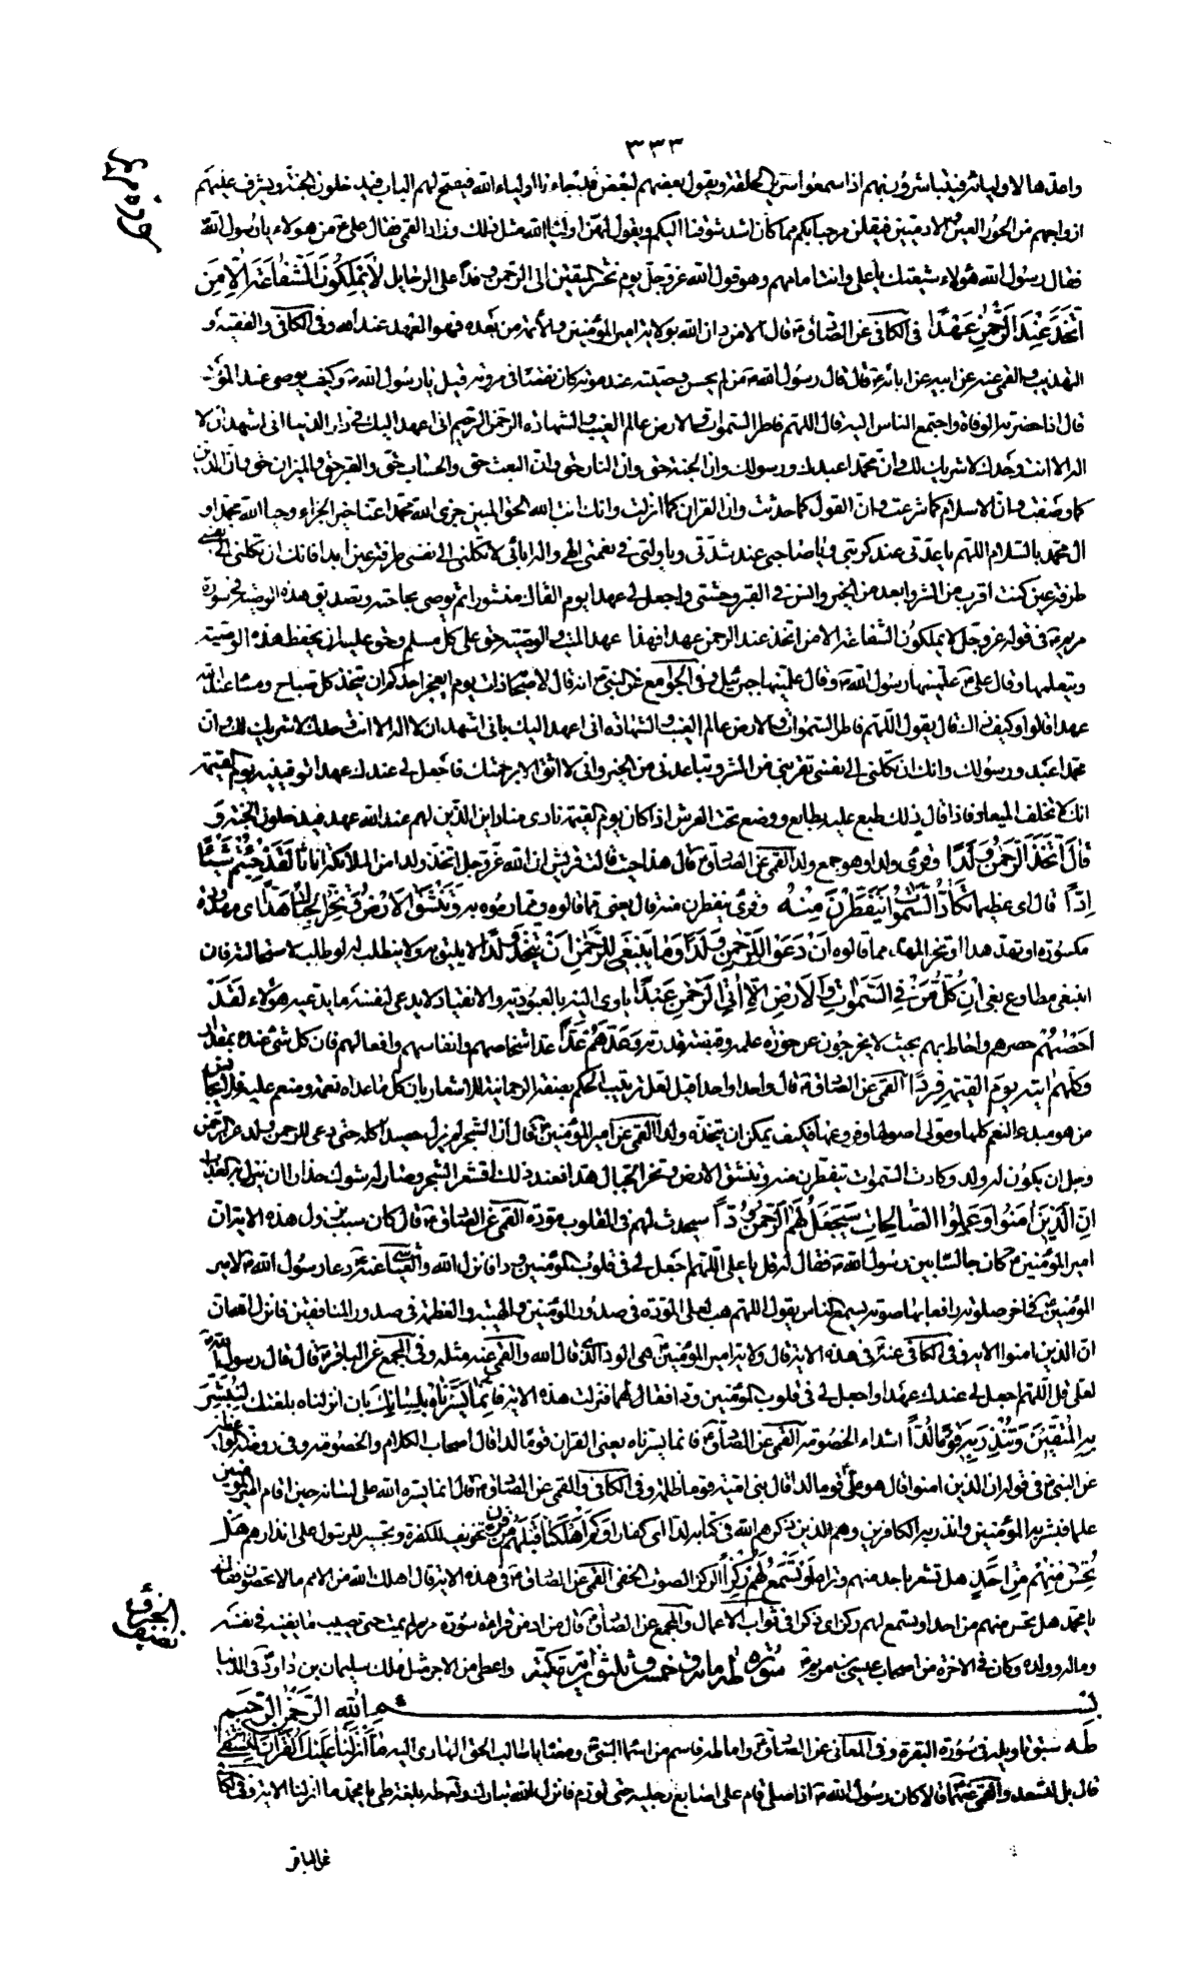 ٣٣٣
سورة مريم
واعدها لاوليائه فيتباشرون بهم اذا سمعوا صرير الحلقة ويقول بعضهم لبعض قد جاءنا اولياء الله فيفتح لهم الباب فيدخلون الجنة ويشرف عليهم
ازواجهم من الحور العين والادميين فيقلن مرحبا بكم فما كان اشد شوقنا اليكم ويقول لهن اولياء الله مثل ذلك وزاد القمي فقال علي ع من هؤلاء يا رسول الله ص
فقال رسول الله هؤلاء شيعتك يا علي وانت امامهم وهو قول الله عز وجل يوم نحشر المتقين الى الرحمن وفدا على الرحايل لَا يَمْلِكُونَ الشَّفَاعَةَ إِلَّا مَنِ
اتَّخَذَ عِنْدَ الرَّحْمٰنِ عَهْدًا في الكافي عن الصادق ع قال الا من دان الله بولاية امير المؤمنين والأئمة من بعده فهو العهد عند الله وفي الكافي والفقيه و
التهذيب والقمي عنه عن ابيه عن ابائه ع قال قال رسول الله ص من لم يحسن وصيته عند موته كان نقصا في مروته قيل يا رسول الله ص وكيف يوصي عند الموت
قال اذا حضرته الوفاة واجتمع الناس اليه قال اللهم فاطر السموات والارض عالم الغيب والشهادة الرحمن الرحيم اني اعهد اليك في دار الدنيا اني اشهد ان لا
اله الا انت وحدك لا شريك لك وان محمدا عبدك ورسولك وان الجنة حق وان النار حق وان البعث حق والحساب حق والقدر حق والميزان حق وان الدين
كما وصفت وان الاسلام كما شرعت وان القول كما حدثت وان القران كما انزلت وانك انت الله الحق المبين جزى الله محمدا عنا خير الجزاء وحيا الله محمدا و
ال محمد بالسلام اللهم يا عدتي عند كربتي ويا صاحبي عند شدتي ويا وليي في نعمتي الهي واله ابائي لا تكلني الى نفسي طرفة عين ابدا فانك ان تكلني الى نفسي
طرفة عين كنت اقرب من الشر وابعد من الخير وانس في القبر وحشتي واجعل لي عهدا يوم القاك منشورا ثم يوصي بحاجته وتصديق هذه الوصية في سورة
مريم ع في قوله عز وجل لا يملكون الشفاعة الا من اتخذ عند الرحمن عهدا فهذا عهد الميت والوصية حق على كل مسلم وحق عليه ان يحفظ هذه الوصية
ويتعلمها وقال علي ع علمنيها رسول الله ص وقال علمنيها جبرئيل وفي الجوامع عن النبي ص انه قال لاصحابه ذات يوم ايعجز احدكم ان يتخذ كل صباح ومساء عند الله
عهدا قالوا وكيف ذلك قال يقول اللهم فاطر السموات والارض عالم الغيب والشهادة اني اعهد اليك باني اشهد ان لا اله الا انت وحدك لا شريك لك وان
محمدا عبدك ورسولك وانك ان تكلني الى نفسي تقربني من الشر وتباعدني من الخير واني لا اثق الا برحمتك فاجعل لي عندك عهدا توفينيه يوم القيمة
انك لا تخلف الميعاد فاذا قال ذلك طبع عليه بطابع ووضع تحت العرش فاذا كان يوم القيمة نادى مناد اين الذين لهم عند الله عهد فيدخلون الجنة و
قَالُوا اتَّخَذَ الرَّحْمٰنُ وَلَدًا وقرئ ولدا وهو جمع ولد القمي عن الصادق ع قال هذا حيث قالت قريش ان الله عز وجل اتخذ ولدا من الملائكة اناثا لَقَدْ جِئْتُمْ شَيْئًا
إِدًّا قال اي عظيما تَكَادُ السَّمٰوَاتُ يَتَفَطَّرْنَ مِنْهُ وقرئ ينفطرن منه قال يعني مما قالوه ومما رموه به وَتَنْشَقُّ الْأَرْضُ وَتَخِرُّ الْجِبَالُ هَدًّا اي مهدودة
مكسورة او تهد هدا او تخر للهد، مما قالوه أَنْ دَعَوْا لِلرَّحْمٰنِ وَلَدًا وَمَا يَنْبَغِي لِلرَّحْمٰنِ أَنْ يَتَّخِذَ وَلَدًا لا يليق به ولا ينطلب له لو طلب لاستحالته فان
انبغى مطاوع بغى إِنْ كُلُّ مَنْ فِي السَّمٰوَاتِ وَالْأَرْضِ إِلَّا آتِي الرَّحْمٰنِ عَبْدًا ياوي اليه بالعبودية والانقياد لا يدعي لنفسه ما يدعيه هؤلاء لَقَدْ
أَحْصٰهُمْ حصرهم واحاط بهم بحيث لا يخرجون عن حوزة علمه وقبضة قدرته وَعَدَّهُمْ عَدًّا عد اشخاصهم وانفاسهم وافعالهم فان كل شيء عنده بمقدار
وَكُلُّهُمْ آتِيهِ يَوْمَ الْقِيٰمَةِ فَرْدًا القمي عن الصادق ع قال واحدا واحدا قيل لعل ترتيب الحكم بصفة الرحمانية للاشعار بان كل ما عداه نعمة ومنعم عليه فلا يجانس
من هو مبدء النعم كلها ومولى اصولها وفروعها فكيف يمكن ان يتخذه ولدا القمي عن امير المؤمنين ع قال ان الشجر لم يزل حصيدا كله حتى دعي للرحمن ولد عز الرحمن
وجل ان يكون له ولد وكادت السموات يتفطرن منه وتنشق الارض وتخر الجبال هدا فعند ذلك اقشعر الشجر وصار له شوك حذارا ان ينزل به العذاب
إِنَّ الَّذِينَ اٰمَنُوا وَعَمِلُوا الصَّالِحَاتِ سَيَجْعَلُ لَهُمُ الرَّحْمٰنُ وُدًّا سيحدث لهم في القلوب مودة القمي عن الصادق ع قال كان سبب نزول هذه الاية ان
امير المؤمنين ع كان جالسا بين يدي رسول الله ص فقال له قل يا علي اللهم اجعل لي في قلوب المؤمنين ودا فانزل الله والعياشي عنه ع دعا رسول الله ص لامير
المؤمنين ع في اخر صلوته رافعا بها صوته يسمع الناس يقول اللهم هب لعلي المودة في صدور المؤمنين والهيبة والعظمة في صدور المنافقين فانزل الله ان
ان الذين امنوا الاية وفي الكافي عنه ع في هذه الاية قال ولاية امير المؤمنين ع هي الود الذي قال الله والقمي عنه مثله وفي المجمع عن الباقر ع قال قال رسول الله ص
لعلي قل اللهم اجعل لي عندك عهدا واجعل لي في قلوب المؤمنين ودا فقالهما فنزلت هذه الاية فَإِنَّمَا يَسَّرْنَاهُ بِلِسَانِكَ بان انزلناه بلغتك لِتُبَشِّرَ
بِهِ الْمُتَّقِينَ وَتُنْذِرَ بِهِ قَوْمًا لُدًّا اشداء الخصومة القمي عن الصادق ع فانما يسرناه يعني القران قوما لدا قال اصحاب الكلام والخصومة وفي روضة الواعظين
عن النبي ص في قوله ان الذين امنوا قال هو علي ع قوما لدا قال بني امية قوما ظلمة وفي الكافي والقمي عن الصادق ع قال انما يسره الله على لسانه حين اقام امير المؤمنين
علما فبشر به المؤمنين وانذر به الكافرين وهم الذين ذكرهم الله في كتابه لدا اي كفارا وَكَمْ أَهْلَكْنَا قَبْلَهُمْ مِنْ قَرْنٍ تخويف للكفرة وتجسير للرسول على انذارهم هَلْ
تُحِسُّ مِنْهُمْ مِنْ أَحَدٍ هل تشعر باحد منهم وتراه أَوْ تَسْمَعُ لَهُمْ رِكْزًا الركز الصوت الخفي القمي عن الصادق ع في هذه الاية قال اهلك الله من الامم ما لا يحصون فقال
يا محمد هل تحس منهم من احد او تسمع لهم ركزا اي ذكرا في ثواب الاعمال والمجمع عن الصادق ع قال من ادمن قراءة سورة مريم لم يمت حتى يصيب ما يغنيه في نفسه
وماله وولده وكان في الاخرة من اصحاب عيسى بن مريم ع سورة طه مائة وخمس وثلثون اية مكية واعطي من الاجر مثل ملك سليمان بن داود في الدنيا
الجزء
نصف
بسم الله الرحمن الرحيم
طٰهٰ سبق تاويله في سورة البقرة وفي المعاني عن الصادق ع واما طه فاسم من اسماء النبي ص ومعناه يا طالب الحق الهادي اليه مَا أَنْزَلْنَا عَلَيْكَ الْقُرْاٰنَ لِتَشْقٰى
قال بل لتسعد والقمي عنهما ع قالا كان رسول الله ص اذا صلى قام على اصابع رجليه حتى تورم فانزل الله تبارك وتعالى طه بلغة طي يا محمد ما انزلنا الاية وفي الكافي
عن الباقر